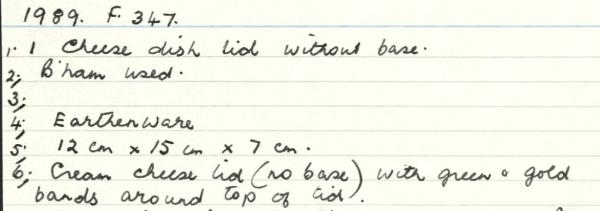 1989. F. 347.
1. 1 Cheese dish lid without base.
2; B'ham used.
3;
4; Earthenware
5; 12 cm x 15 cm x 7 cm.
6; Cream cheese lid (no base) with green & gold
bands around top of lid.